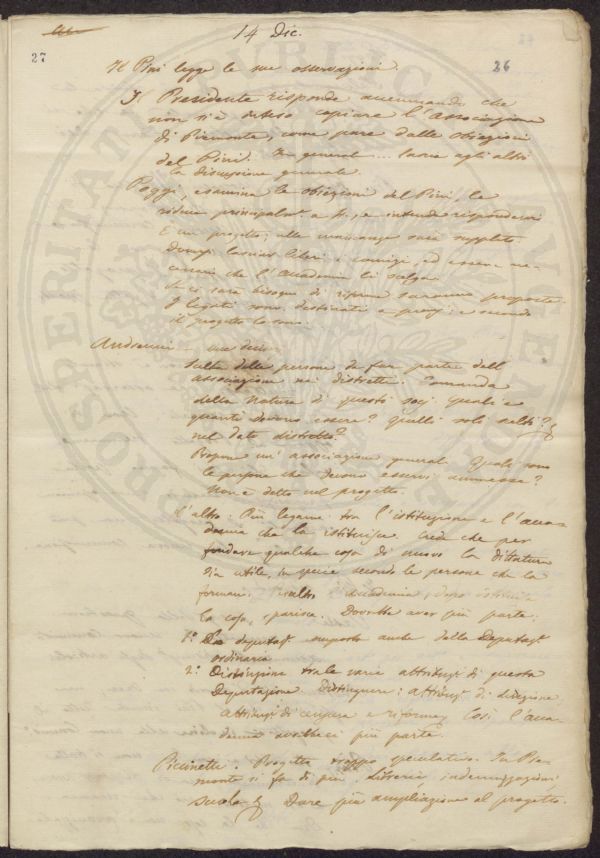 14 Dic.
27
26
Il Pini legge le sue osservazioni
Il Presidente risponde accennando che
non s'è inteso copiare l'associazione
di Piemonte, come pare dalle obiezioni
del Pini. In general... lascia agli altri
la discussione generale.
Poggi, esamina le obiezioni del Pini, le
riduce principalm. a
È un progetto; alle mancanze sarà supplito.
lasciar liberi i comizi, ed essere
che l'Accademia li
ci sarà bisogno di riforme saranno proposte.
I legati sono destinati a premj; e secondo
il progetto lo sono.
Andreucci
Scelta delle persone da far parte dell
associazione nei distretti. Domanda
della natura di questi socj. quali e
quanti devono essere? Quelli soli scelti
nel dato distretto?
Propone un'associazione general. Quali sono
le persone che devono esservi ammesse?
Non è detto nel progetto.
L'altro. Più legame tra l'istituzione e l'acca-
demia che la istituisce. Crede che per
fondare qualche cosa di nuovo la dittatura
sia utile, in specie secondo le persone che la
formano. accademia, dopo istituita
la cosa, sparisce. Dovrebbe aver più parte.
1.° La deputaz. composta anche della Deputaz.
ordinaria
2.° Distinzione tra le varie attribuzi di questa
Deputazione. Distinguere: attribuzi di direzione
attribuzi di censura e riforma; Così l'acca-
demia avrebbe più parte.
Progetto troppo speculativo. In Pie-
monte si fa di più. Librerie, indennizzazioni,
scuole Dare più ampliazione al progetto.